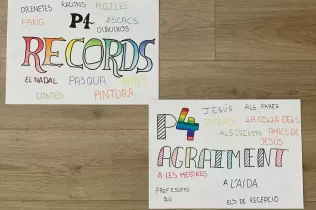 ORENETES RACONS PUZZLES
FANG P4 ESCACS
DIBUIXOS
RECORDS
EL NADAL PASQUA
CONTES PINTURA
P4 JESÚS ALS PARES
LA COLLA DELS
ALS CUINERS AMICS DE
JESÚS
AGRAÏMENT
A LES MESTRES
PROFESSORS A L'AIDA
ELS DE RECEPCIÓ